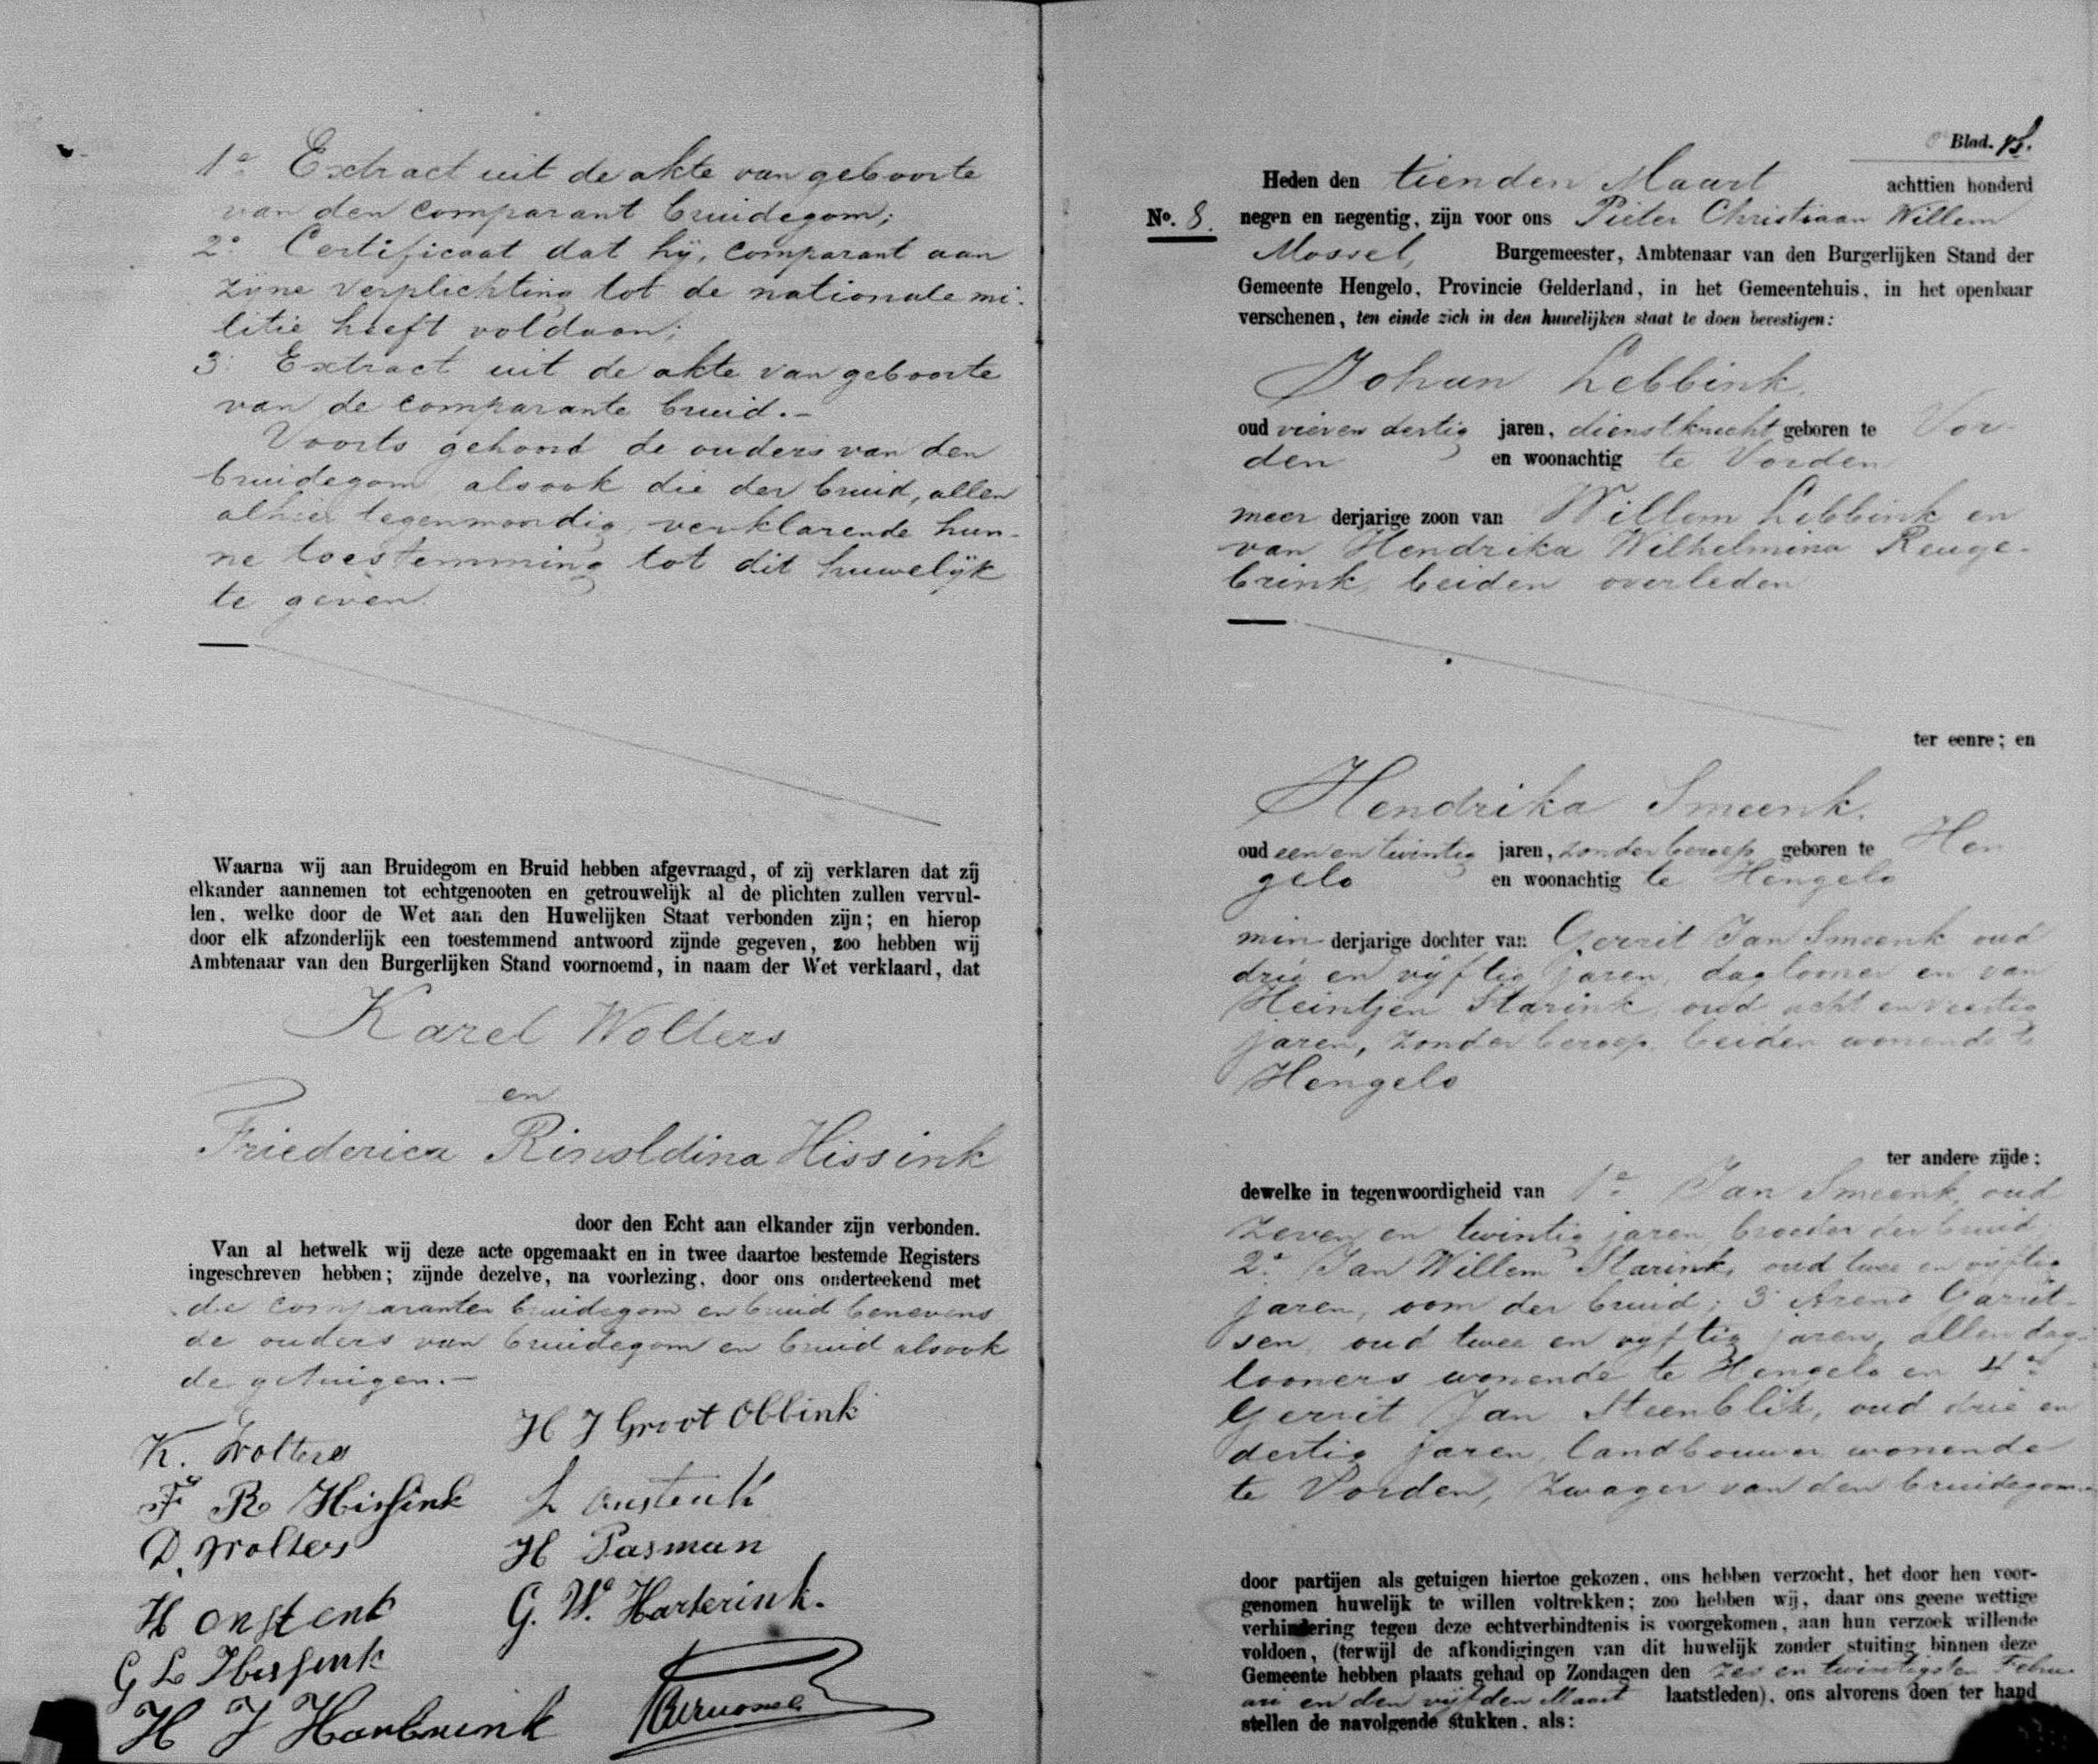 1e Extract uit de akte van geboorte
van den comparant bruidegom;
2e Certificaat dat hij, comparant aan
zijne verplichting tot de nationale mi-
litie heeft voldaan;
3e Extract uit de akte van geboorte
van de comparante bruid.-
Voorts gehoord de ouders van den
bruidegom alsook die der bruid, allen
alhier tegenwoordig, verklarende hun-
ne toestemming tot dit huwelijk
te geven.
Waarna wij aan Bruidegom en Bruid hebben afgevraagd, of zij verklaren dat zij
elkander aannemen tot echtgenooten en getrouwelijk al de plichten zullen vervul-
len, welke door de Wet aan den Huwelijken Staat verbonden zijn; en hierop
door elk afzonderlijk een toestemmend antwoord zijnde gegeven, zoo hebben wij
Ambtenaar van den Burgerlijken Stand voornoemd, in naam der Wet verklaard, dat
Karel Wolters
en
Friederica Rinoldina Hissink
door den Echt aan elkander zijn verbonden.
Van al hetwelk wij deze acte opgemaakt en in twee daartoe bestemde Registers
ingeschreven hebben; zijnde dezelve, na voorlezing, door ons onderteekend met
de comparanten bruidegom en bruid benevens
de ouders van bruidegom en bruid alsook
de getuigen.-
K. Wolters
F R Hissink
D. Wolters
H Onstenk
G L Hissink
H J Harbrink
H J Groot Obbink
L Onstenk
H Pasman
G. W. Harterink.
Blad.
Heden den tienden Maart achttien honderd
No. 8. negen en negentig, zijn voor ons Pieter Christiaan Willem
Mossel, Burgemeester, Ambtenaar van den Burgerlijken Stand der
Gemeente Hengelo, Provincie Gelderland, in het Gemeentehuis, in het openbaar
verschenen, ten einde zich in den huwelijken staat te doen bevestigen:
Johan Lebbink,
oud vier en dertig jaren, dienstknecht geboren te Vor-
den en woonachtig te Vorden
meer derjarige zoon van Willem Lebbink en
van Hendrika Wilhelmina Reuge-
brink, beiden overleden
ter eenre; en
Hendrika Smeenk.
oud een en twintig jaren, zonder beroep geboren te Hen
gelo en woonachtig te Hengelo
min derjarige dochter van Gerrit Jan Smeenk oud
drie en vijftig jaren, daglooner en van
Heintjen Starink, oud acht en veertig
jaren, zonder beroep, beiden wonende te
Hengelo
ter andere zijde;
dewelke in tegenwoordigheid van 1e Jan Smeenk, oud
zeven en twintig jaren, broeder der bruid
2e Jan Willem Starink, oud twee en vijftig
jaren, oom der bruid; 3e Arend Garrit-
sen, oud twee en vijftig jaren, allen dag-
looners wonende te Hengelo en 4e
Gerrit Jan Steenblik, oud drie en
dertig jaren, landbouwer wonende
te Vorden, zwager van den bruidegom.
door partijen als getuigen hiertoe gekozen, ons hebben verzocht, het door hen voor-
genomen huwelijk te willen voltrekken; zoo hebben wij, daar ons geene wettige
verhindering tegen deze echtverbindtenis is voorgekomen, aan hun verzoek willende
voldoen, (terwijl de afkondigingen van dit huwelijk zonder stuiting binnen deze
Gemeente hebben plaats gehad op Zondagen den zes en twintigsten Febru-
ari en den vijfden Maart laatstleden), ons alvorens doen ter hand
stellen de navolgende stukken, als: